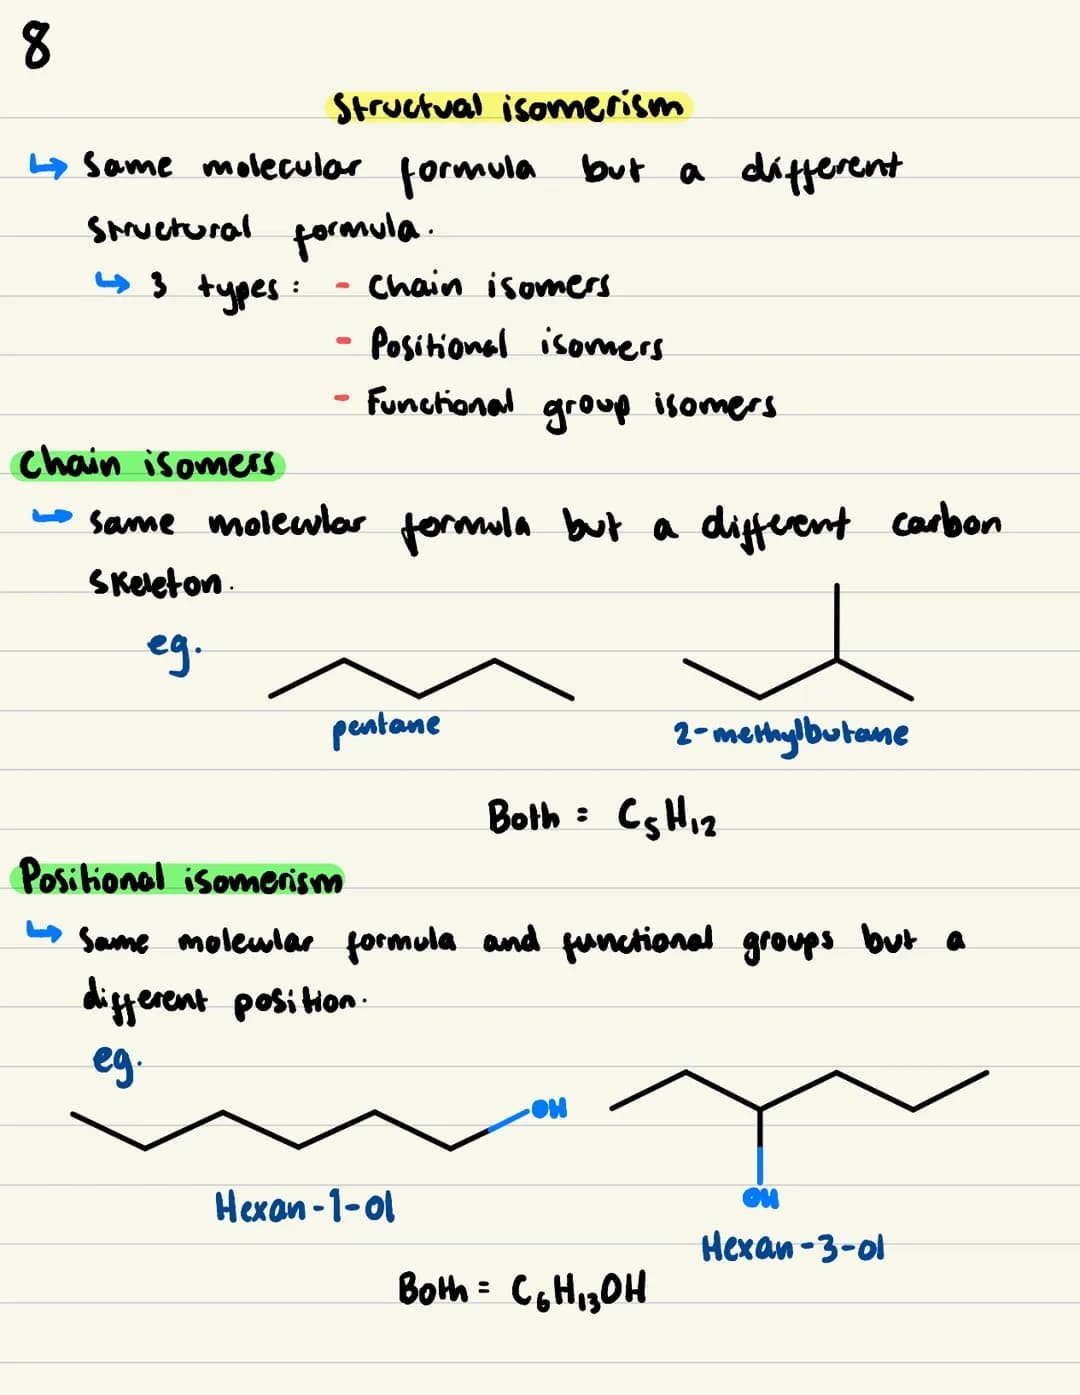 8
Structual isomerism
↳ Same molecular formula but a different
structural formula.
↳ 3 types: - Chain isomers
- Positional isomers
- Functional group isomers
Chain isomers
↳ same molecular formula but a different carbon
skeleton.
eg.
pentane 2-methylbutane
Both = C₅H₁₂
Positional isomerism
↳ Same molecular formula and functional groups but a
different position.
eg.
OH
OH
Hexan-1-ol
Hexan-3-ol
Both = C₆H₁₃OH